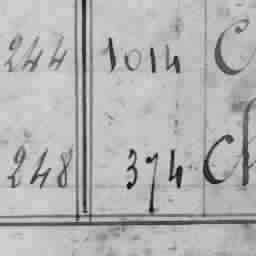 244 1014 C
248 374 Ch